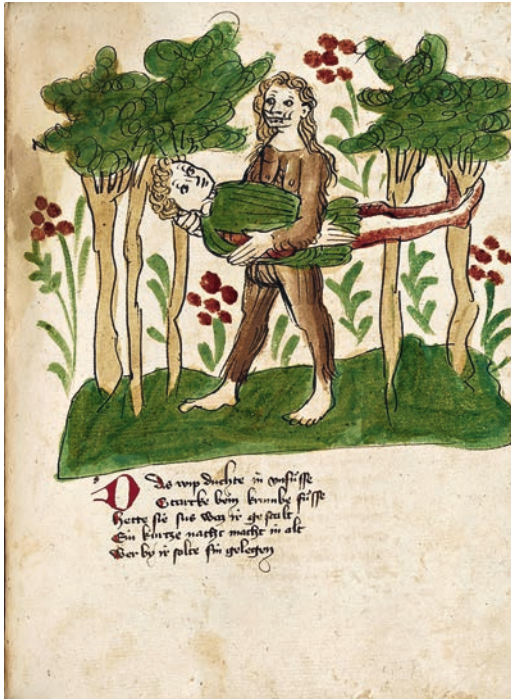 Das wip duchte in vnsüsse
Starcke bein krumbe füsse
Hette sie sus waz ir gestalt
Ein kurtze nacht macht in alt
Wer by ir solte sin gelegen